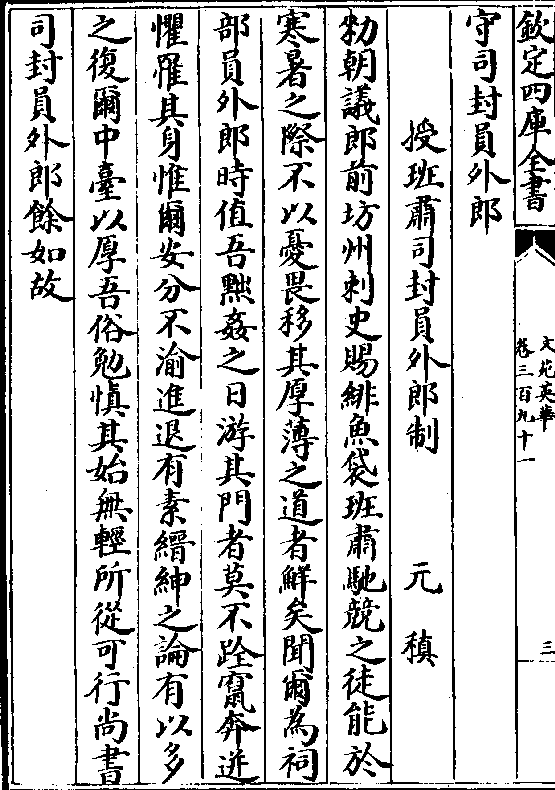 欽定四庫全書
文苑英華
卷三百九十一
三
守司封員外郎
授班肅司封員外郎制 元稹
勑朝議郎前坊州刺史賜緋魚袋班肅馳競之徒能於
寒暑之際不以憂畏移其厚薄之道者鮮矣聞爾為祠
部員外郎時值吾黜姦之日游其門者莫不跧竄奔迸
懼罹其身惟爾安分不渝進退有素縉紳之論有以多
之復爾中臺以厚吾俗勉慎其始無輕所從可行尚書
司封員外郎餘如故